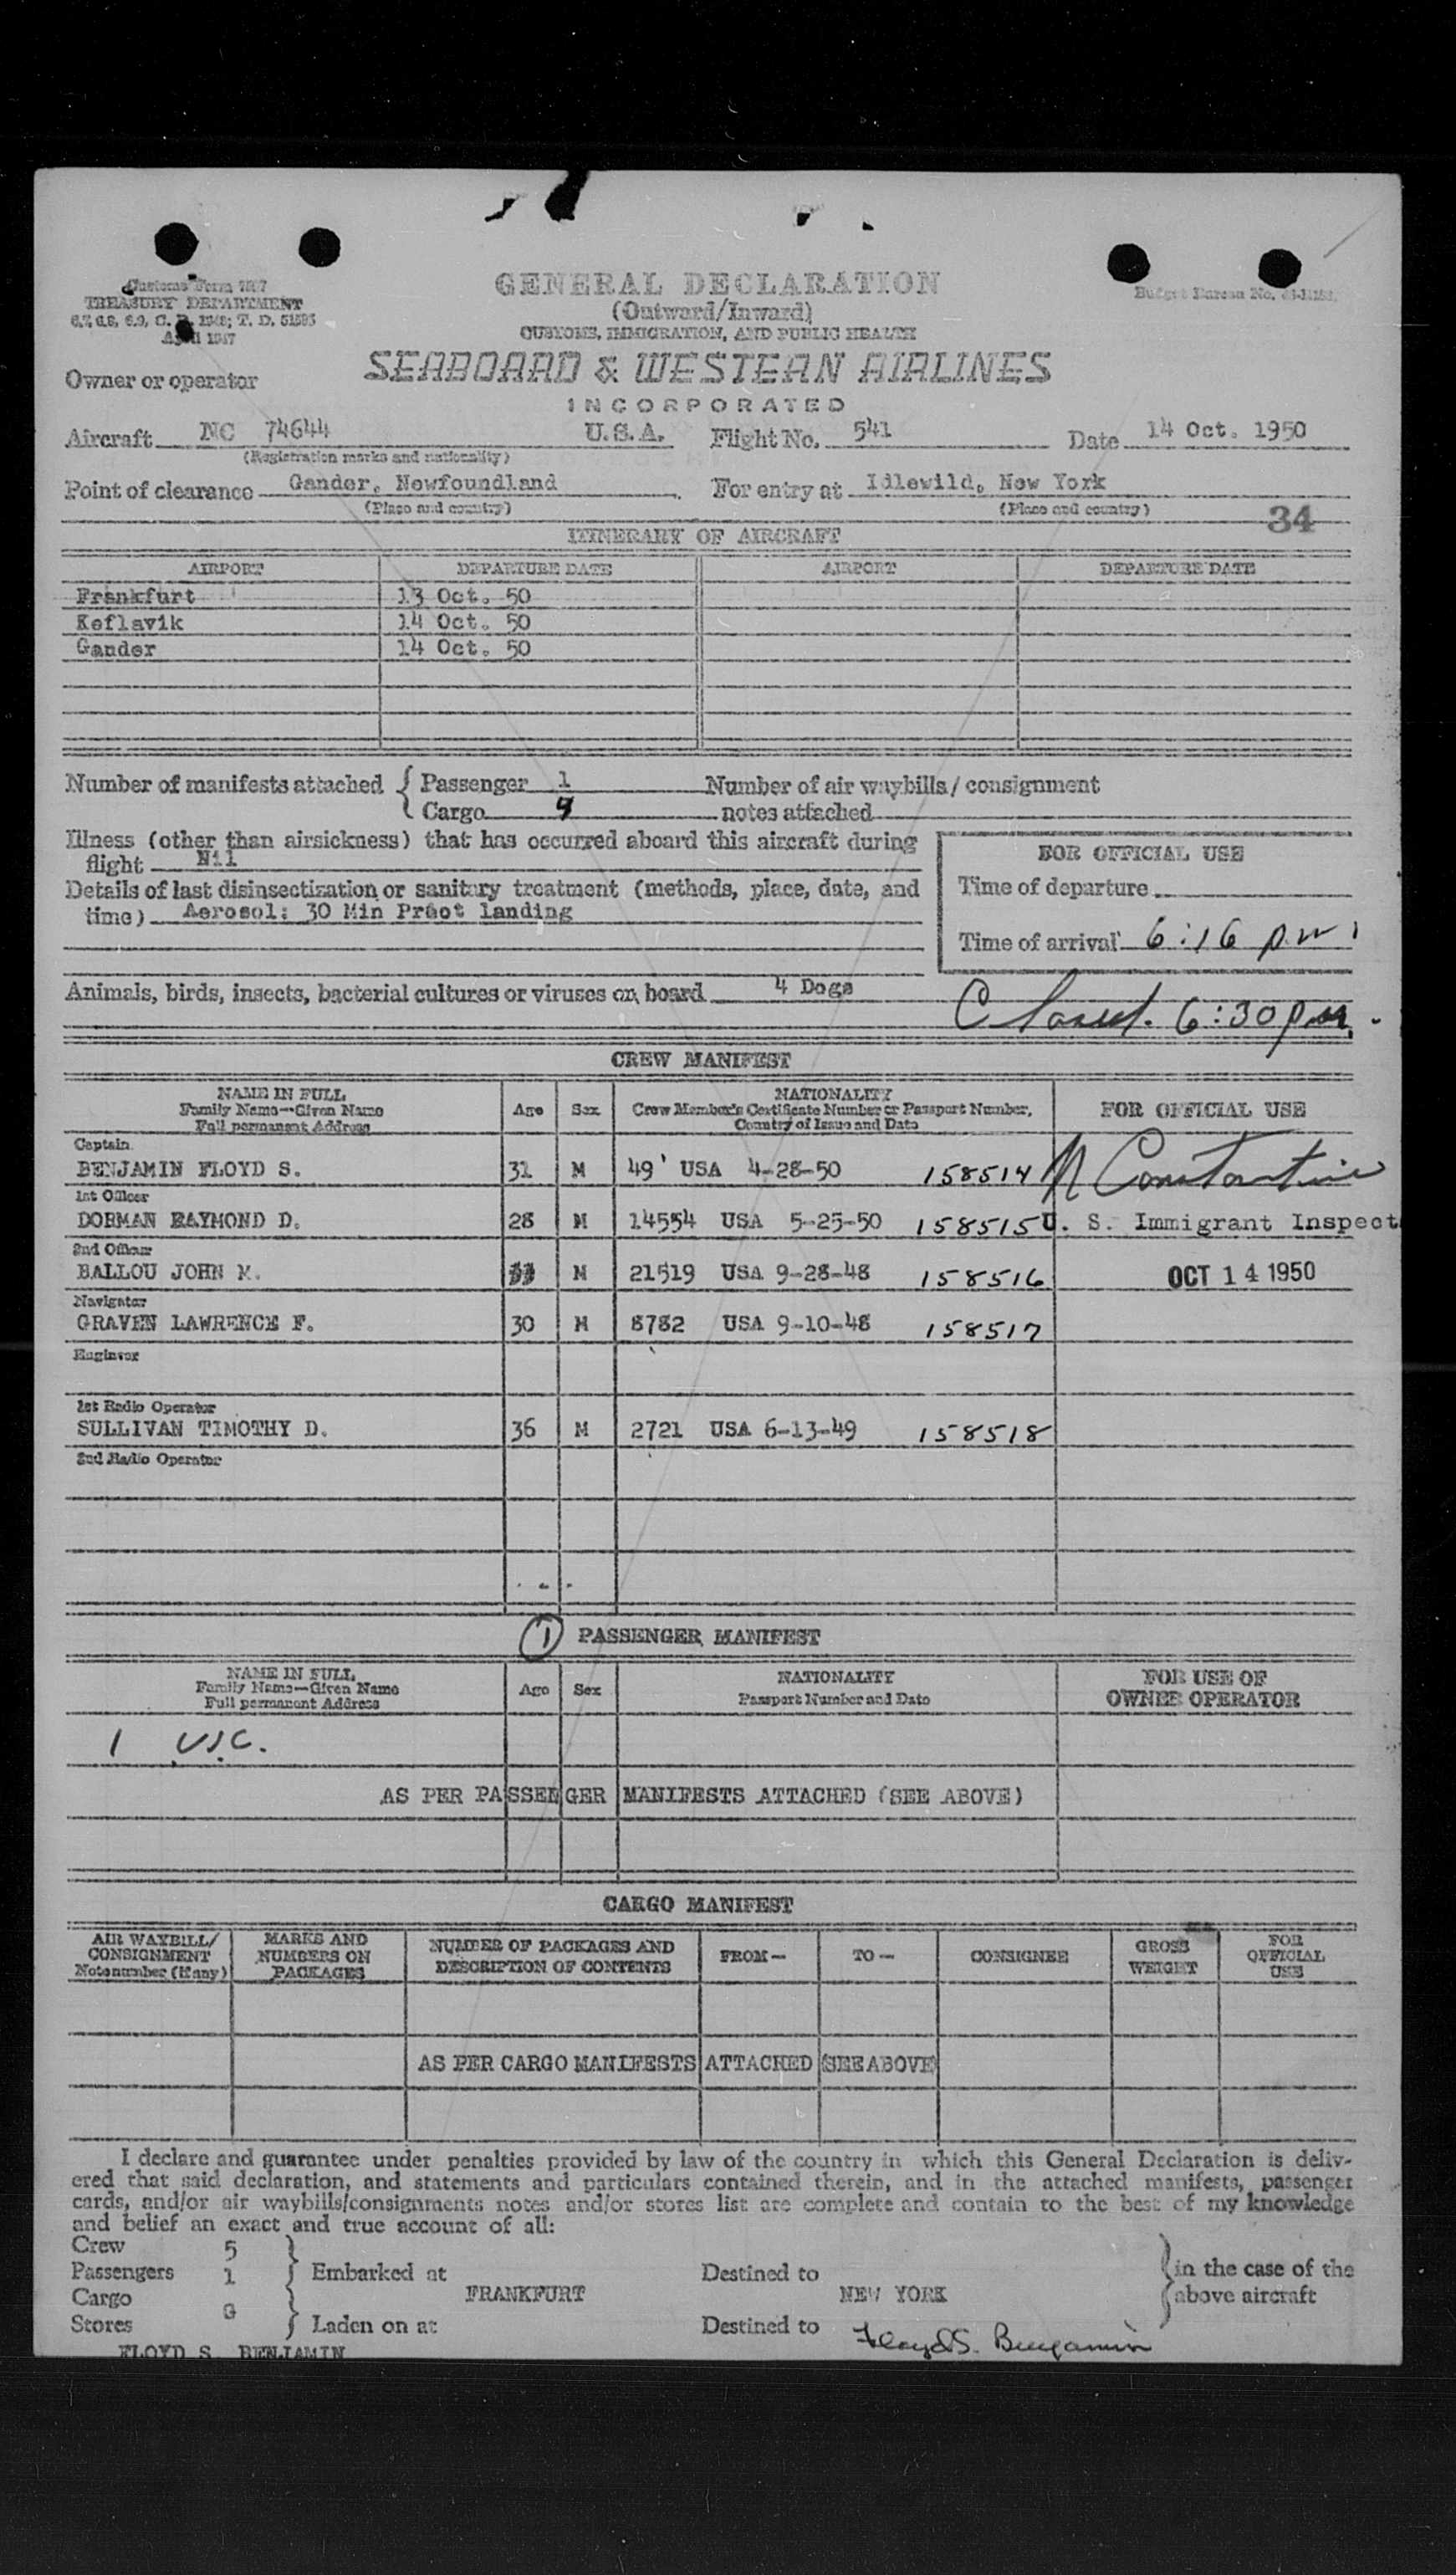 Customs Form 7507
TREASURY DEPARTMENT
April 1947
GENERAL DECLARATION
(Outward/Inward)
CUSTOMS, IMMIGRATION, AND PUBLIC HEALTH
Budget Bureau No.
Owner or operator
SEABOARD & WESTERN AIRLINES
INCORPORATED
Aircraft NC 74644 U.S.A. Flight No. 541 Date 14 Oct. 1950
(Registration marks and nationality)
Point of clearance Gander, Newfoundland. For entry at Idlewild, New York
(Place and country) (Place and country) 34
ITINERARY OF AIRCRAFT
AIRPORT DEPARTURE DATE AIRPORT DEPARTURE DATE
Frankfurt 13 Oct. 50
Keflavik 14 Oct. 50
Gander 14 Oct. 50
Number of manifests attached { Passenger 1 Number of air waybills/consignment
Cargo 4 notes attached
Illness (other than airsickness) that has occurred aboard this aircraft during
flight Nil
FOR OFFICIAL USE
Details of last disinsectization or sanitary treatment (methods, place, date, and
time) Aerosol: 30 Min Preot Landing
Time of departure
Time of arrival 6:16 pm
Animals, birds, insects, bacterial cultures or viruses on board 4 Dogs
Closed. 6:30 pm.
CREW MANIFEST
NAME IN FULL
Family Name—Given Name
Full permanent Address
Age Sex
NATIONALITY
Crew Member's Certificate Number or Passport Number,
Country of Issue and Date
FOR OFFICIAL USE
Captain
BENJAMIN FLOYD S. 31 M 49' USA 4-28-50 158514 N Constantine
1st Officer
DORMAN RAYMOND D. 28 M 14554 USA 5-25-50 158515 U. S. Immigrant Inspect
2nd Officer
BALLOU JOHN M. M 21519 USA 9-28-48 158516 OCT 14 1950
Navigator
GRAVEN LAWRENCE F. 30 M 8782 USA 9-10-48 158517
Engineer
1st Radio Operator
SULLIVAN TIMOTHY D. 36 M 2721 USA 6-13-49 158518
2nd Radio Operator
1 PASSENGER MANIFEST
NAME IN FULL
Family Name—Given Name
Full permanent Address
Age Sex
NATIONALITY
Passport Number and Date
FOR USE OF
OWNER OPERATOR
1 USC.
AS PER PASSENGER MANIFESTS ATTACHED (SEE ABOVE)
CARGO MANIFEST
AIR WAYBILL/
CONSIGNMENT
Note number (if any)
MARKS AND
NUMBERS ON
PACKAGES
NUMBER OF PACKAGES AND
DESCRIPTION OF CONTENTS
FROM—
TO—
CONSIGNEE
GROSS
WEIGHT
FOR
OFFICIAL
USE
AS PER CARGO MANIFESTS ATTACHED (SEE ABOVE)
I declare and guarantee under penalties provided by law of the country in which this General Declaration is deliv-
ered that said declaration, and statements and particulars contained therein, and in the attached manifests, passenger
cards, and/or air waybills/consignments notes and/or stores list are complete and contain to the best of my knowledge
and belief an exact and true account of all:
Crew 5
Passengers 1 Embarked at Destined to in the case of the
Cargo FRANKFURT NEW YORK above aircraft
Stores Laden on at Destined to Floyd S. Benjamin
FLOYD S. BENJAMIN